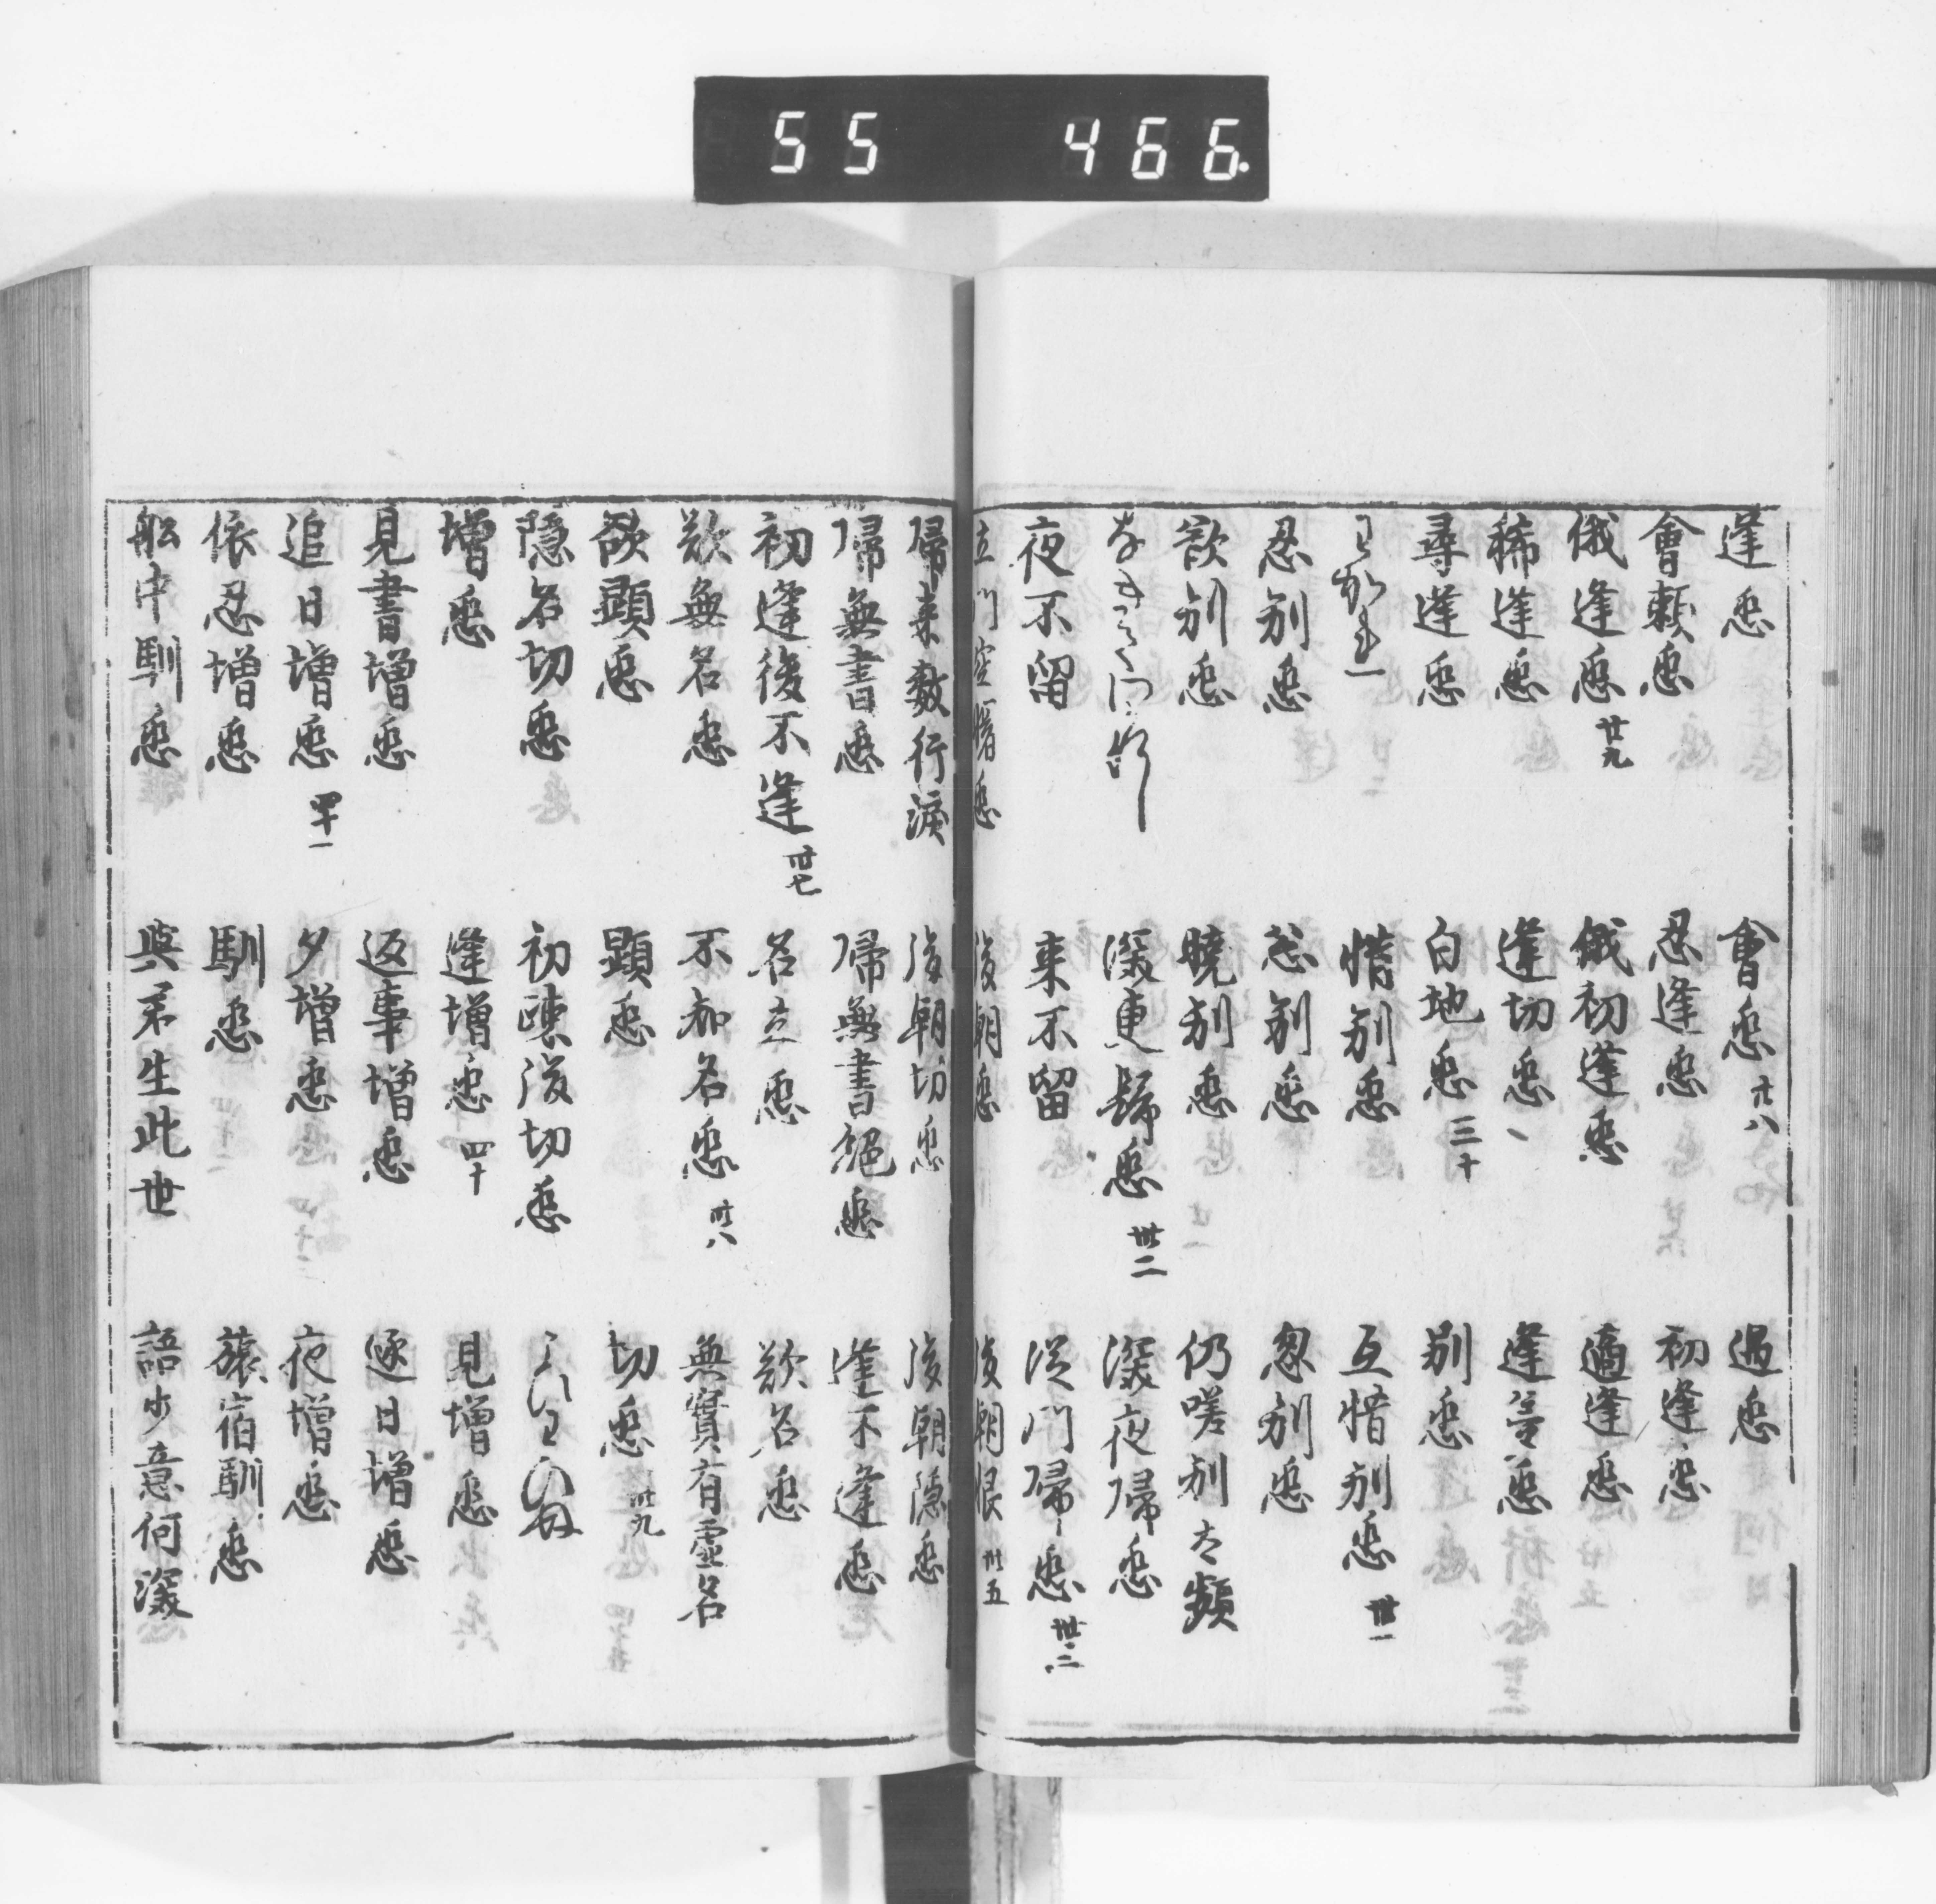 55 466.
逢恋 會恋 廿八 遇恋
會頼恋 忍逢恋 初逢恋
俄逢恋 廿九 俄初逢恋 適逢恋
稀逢恋 逢切恋 逢増恋
尋逢恋 白地恋 三十 別恋
わかれ 惜別恋 互惜別恋 卅一
忍別恋 忩別恋 忽別恋
歎別恋 暁別恋 仍嗟別
深更歸恋 卅二 深夜帰恋
夜不留 来不留 従門帰恋
立門空帰恋 後朝恋 後朝恨 卅五
帰来数行涙 後朝切恋 後朝隠恋
帰無書恋 帰無書絶恋 逢不逢恋
初逢後不逢 卅七 名立恋 歎名恋
歎無名恋 不知名恋 卅八 無實有虚名
欲顕恋 顕恋 切恋 卅九
隠名切恋 初疎後切恋
増恋 逢増恋 四十 見増恋
見書増恋 返事増恋 逐日増恋
追日増恋 四十一 夕増恋 夜増恋
依忍増恋 馴恋 旅宿馴恋
舩中馴恋 與君生此世 語少意何深